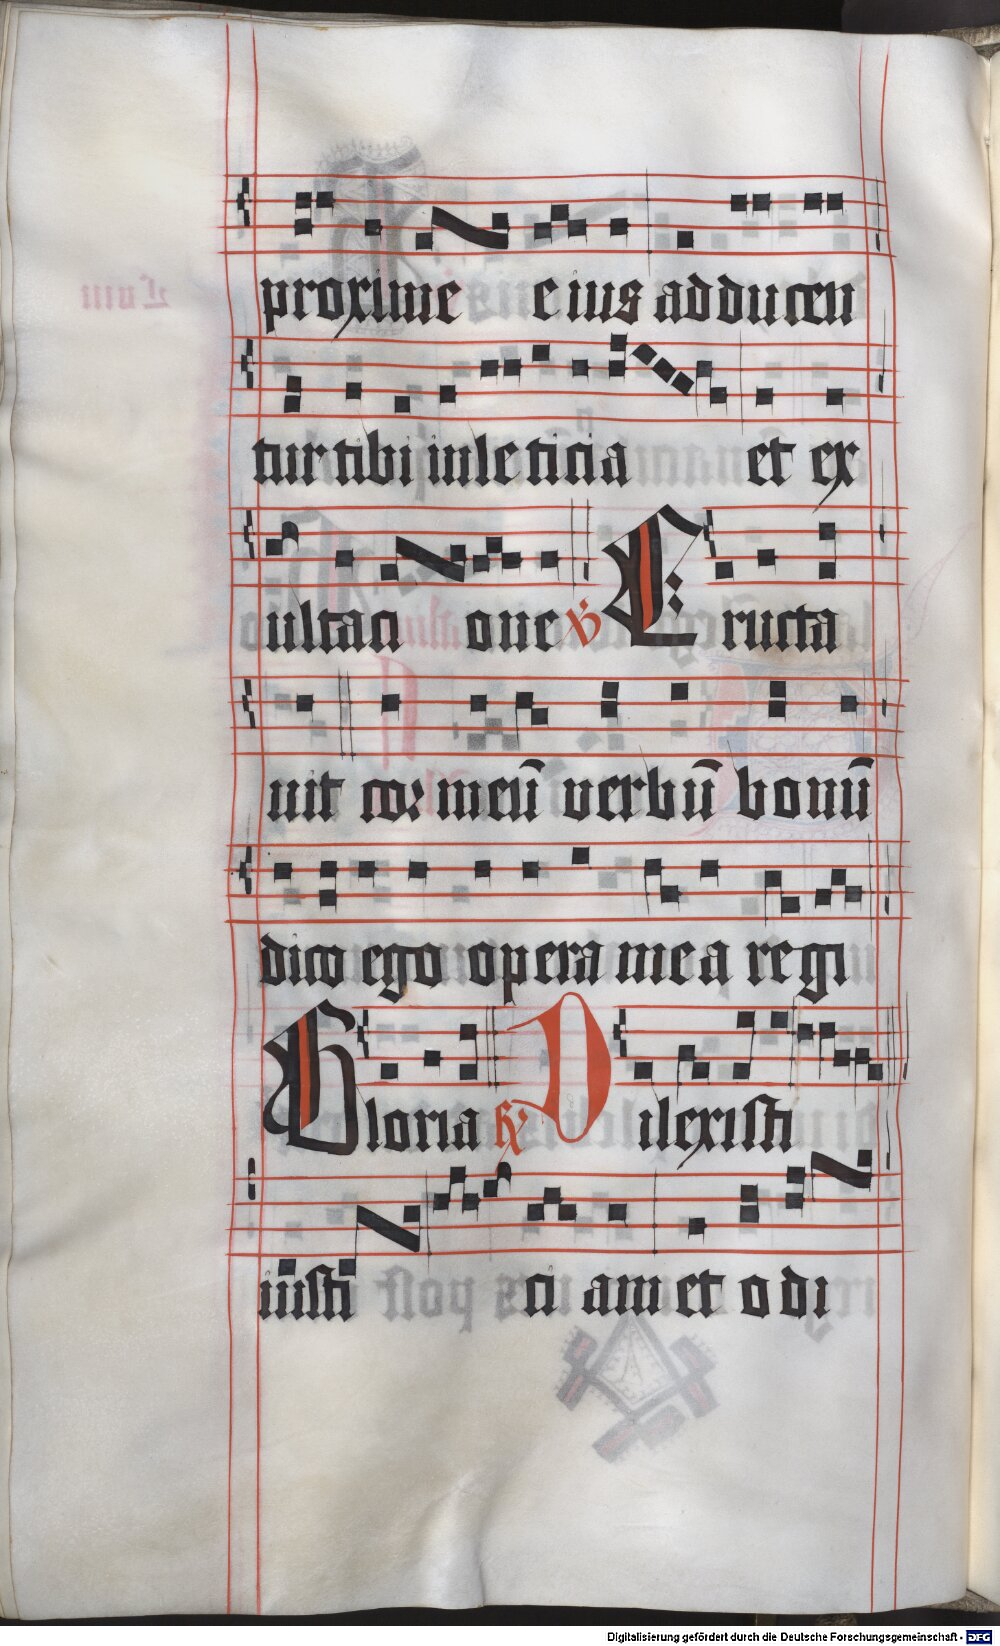 proxime eius adducen
tur tibi in leticia et ex
ultaci one ℣ Eructa
uit cor meū verbū bonū
dico ego opera mea regi
Gloria ℟ Dilexisti
iusti ci am et odi
Digitalisierung gefördert durch die Deutsche Forschungsgemeinschaft - DFG